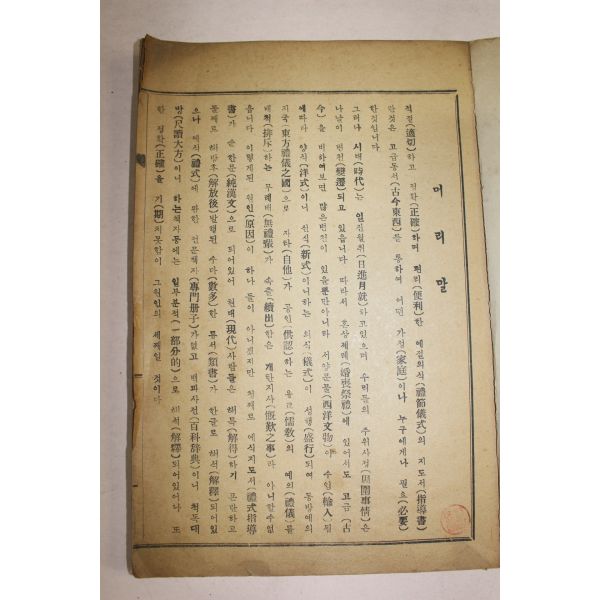 머리말
적절(適切)하고 정확(正確)하며 편리(便利)한 예절의식(禮節儀式)의 지도서(指導書)
란것은 고금동서(古今東西)를 통하여 어떤 가정(家庭)이나 누구에게나 필요(必要)
한것입니다
그러나 시대(時代)는 일진월취(日進月就)하고있으며 우리들의 주위사정(周圍事情)은
나날이 변천(變遷)되고 있읍니다 따라서 혼상제례(婚喪祭禮)에 있어서도 고금(古
今)을 비하여보면 많은변천이 있을뿐만아니라 서양문물(西洋文物)이 수입(輸入)됨
에따라 양식(洋式)이니 신식(新式)이니하는 의식(儀式)이 성행(盛行)되여 동방예의
지국(東方禮儀之國)으로 자타(自他)가 공인(供認)하는 유교(儒敎)의 예의(禮儀)를
배척(排斥)하는 무례배(無禮輩)가 속출(續出)함은 개탄지사(慨歎之事)라 아니할수없
읍니다 이렇게된 원인(原因)이 하나 둘이 아니겠지만 첫째로 예식지도서(禮式指導
書)가 순 한문(純漢文)으로 되어있어 현대(現代)사람들은 해득(解得)하기 곤난하고
둘째로 해방후(解放後)발행된 수다(數多)한 류서(類書)가 한글로 해석(解釋)되어있
으나 예식(禮式)에 관한 전문책자(專門册子)가없고 백과사전(百科辭典)이니 척독대
방(尺讀大方)이니 하는책자등에는 일부분적(一部分的)으로 해석(解釋)되어있어나 또
한 정확(正確)을 기(期)치못함이 그원인의 세째일 것이다